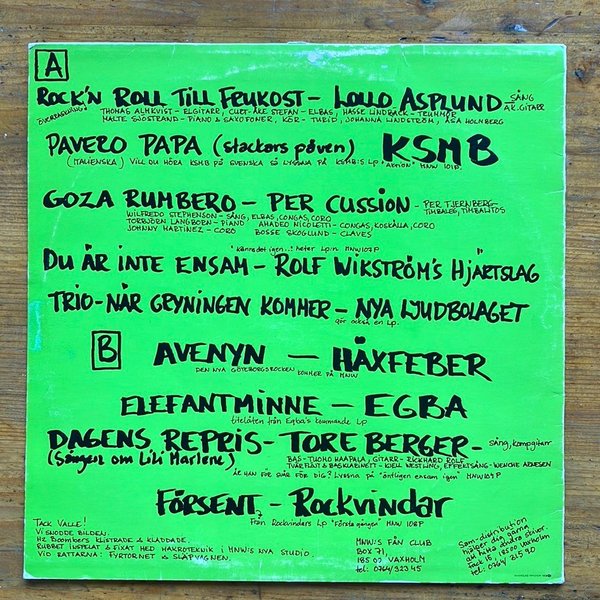 A
ROCK'N ROLL TILL FRUKOST – LOLLO ASPLUND – SÅNG
AK.GITARR
THOMAS ALMKVIST – ELGITARR, CURT-ÅKE STEFAN – ELBAS, HASSE LINDBÄCK – TRUMMOR
MALTE SJÖSTRAND – PIANO & SAXOFONER, KÖR – THERID, JOHANNA LINDSTRÖM, ÅSA HOLMBERG
PAVERO PAPA (stackars påven) KSMB
(ITALIENSKA) VILL DU HÖRA KSMB PÅ SVENSKA SÅ LYSSNA PÅ KSMB:S LP "AKTION" MNW 101P.
GOZA RUMBERO – PER CUSSION – PER TJERNBERG –
TIMBALES, TIMBALITOS
WILFREDO STEPHENSON – SÅNG, ELBAS, CONGAS, CORO
TORBJÖRN LANGBORN – PIANO AMADEO NICOLETTI – CONGAS, KOSKÄLLA, CORO
JOHNNY MARTINEZ – CORO BOSSE SKOGLUND – CLAVES
"Känns det igen..!" heter Lp:n MNW107P
DU ÄR INTE ENSAM – ROLF WIKSTRÖM'S HJÄRTSLAG
TRIO – NÄR GRYNINGEN KOMMER – NYA LJUDBOLAGET
gör också en Lp.
B
AVENYN – HÄXFEBER
DEN NYA GÖTEBORGSROCKEN KOMMER PÅ MNW
ELEFANTMINNE – EGBA
titellåten från Egba's kommande LP
DAGENS REPRIS – TORE BERGER – sång, kompgitarr
(Sången om Lili Marlene)
BAS – TUOMO HAAPALA, GITARR – RICKHARD ROLF
TVÄRFLÖJT & BASKLARINETT – KJELL WESTLING, EFFEKTSÅNG – WENCHE ARNESEN
ÄR HAN FÖR SVÅR FÖR DIG? Lyssna på "äntligen ensam igen" MNW109P
FÖRSENT – Rockvindar
Från Rockvindars LP "Första gången" MNW 108P
TACK VALLE!
VI SNODDE BILDEN.
HZ BOOMBERS KLISTRADE & KLADDADE.
RUBBET INSPELAT & FIXAT MED MAKROTEKNIK I MNW:S NYA STUDIO.
VID RATTARNA: FYRTORNET & SLÄPVAGNEN.
MNW:S FAN CLUB
BOX 71,
185 00 VAXHOLM
tel: 0764/323 45
Sam-distribution
hjälper dig gärna
att hitta andra skivor.
Fack 15, 18500 Vaxholm
tel: 0764 315 90